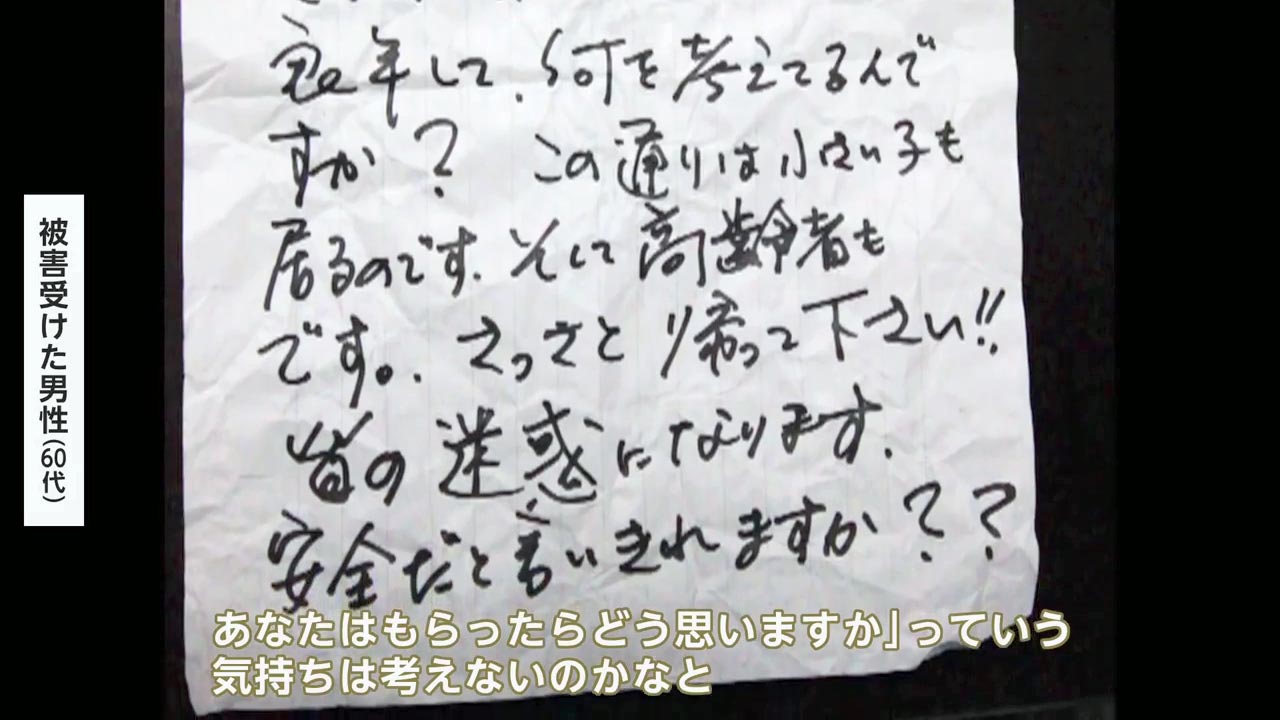 良い年して、何を考えてるんで
すか？ この通りは小さい子も
居るのです、そして高齢者も
です。、さっさと帰って下さい!!
皆の迷惑になります、
安全だと言いきれますか？？
被害受けた男性(60代)
あなたはもらったらどう思いますか」っていう
気持ちは考えないのかなと